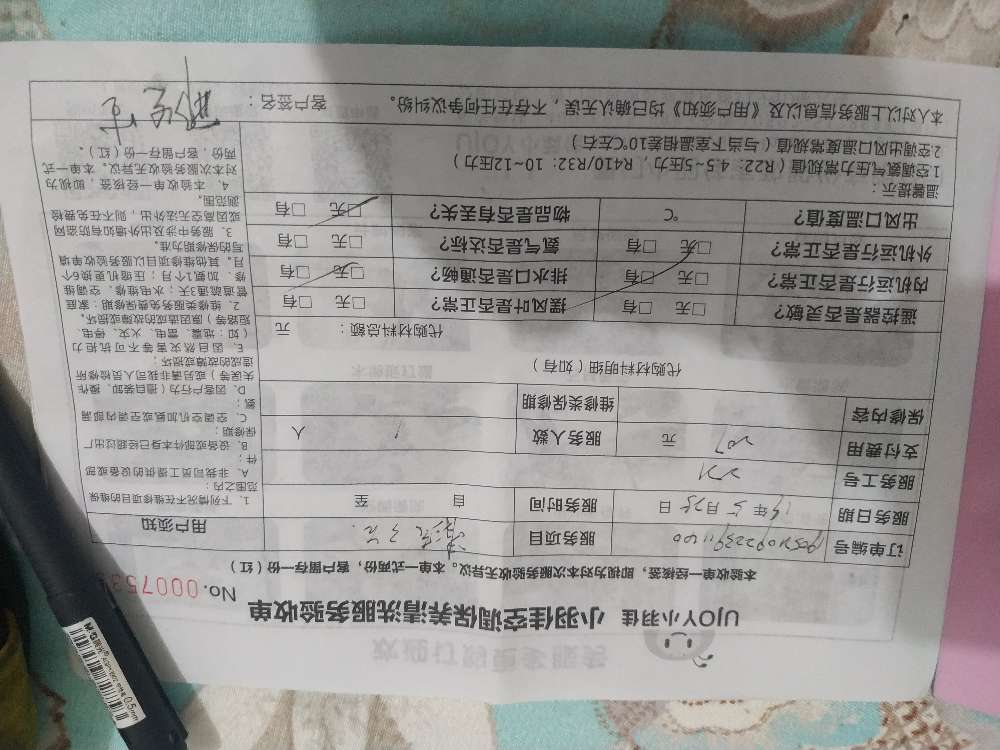 UJOY小羽佳 小羽佳空调保养清洗服务验收单
No. 000753
本验收单一经核签，即视为对本次服务验收无异议。本单一式两份，客户留存一份（红）
订单编号 服务项目
服务日期 年 5 月 25 日 服务时间 自 至
服务工号
支付费用 207 元 服务人数 1 人
保修内容 维修类保修期
代购材料明细（如有）
代购材料总额： 元
遥控器是否灵敏? □无 □有 摆风叶是否正常? □无 □有
内机运行是否正常? □无 □有 排水口是否通畅? □无 □有
外机运行是否正常? □无 □有 氨气是否达标? □无 □有
出风口温度值? ℃ 物品是否有丢失? □无 □有
温馨提示：
1.空调氨气压力常规值（R22：4.5~5压力，R410/R32：10~12压力）
2.空调出风口温度常规值（与当下室温相差10℃左右）
本人对以上服务信息以及《用户须知》均已确认无误，不存在任何争议纠纷。 客户签名：
用户须知
1. 下列情况不在维修项目的维保
范围之内：
A、非我司员工提供的设备或部
件；
B、设备或部件本身已经超过出厂
保修期；
C、空调空机加氨或空调内部漏
氨；
D、因客户行为（擅自装卸、操作
失误等）或另请非我司人员检修所
造成的故障或损坏；
E、因自然灾害等不可抗拒力
（如：地震、雷电、火灾、停电、
短路等）原因造成的故障或损坏。
2、维修类服务免费保修期：家庭
管道疏通3天；水电维修、空调维
修、加氨1个月；压缩机更换6个
月。其他维修项目以服务验收单填
写的保修期为准。
3、服务中涉及出外墙如有防盗网
或因高空无法外出，则不在免费检
测范围。
4、本验收单一经核签，即视为
对本次服务验收无异议。本单一式
两份，客户留存一份（红）。
M&G
0.5mm